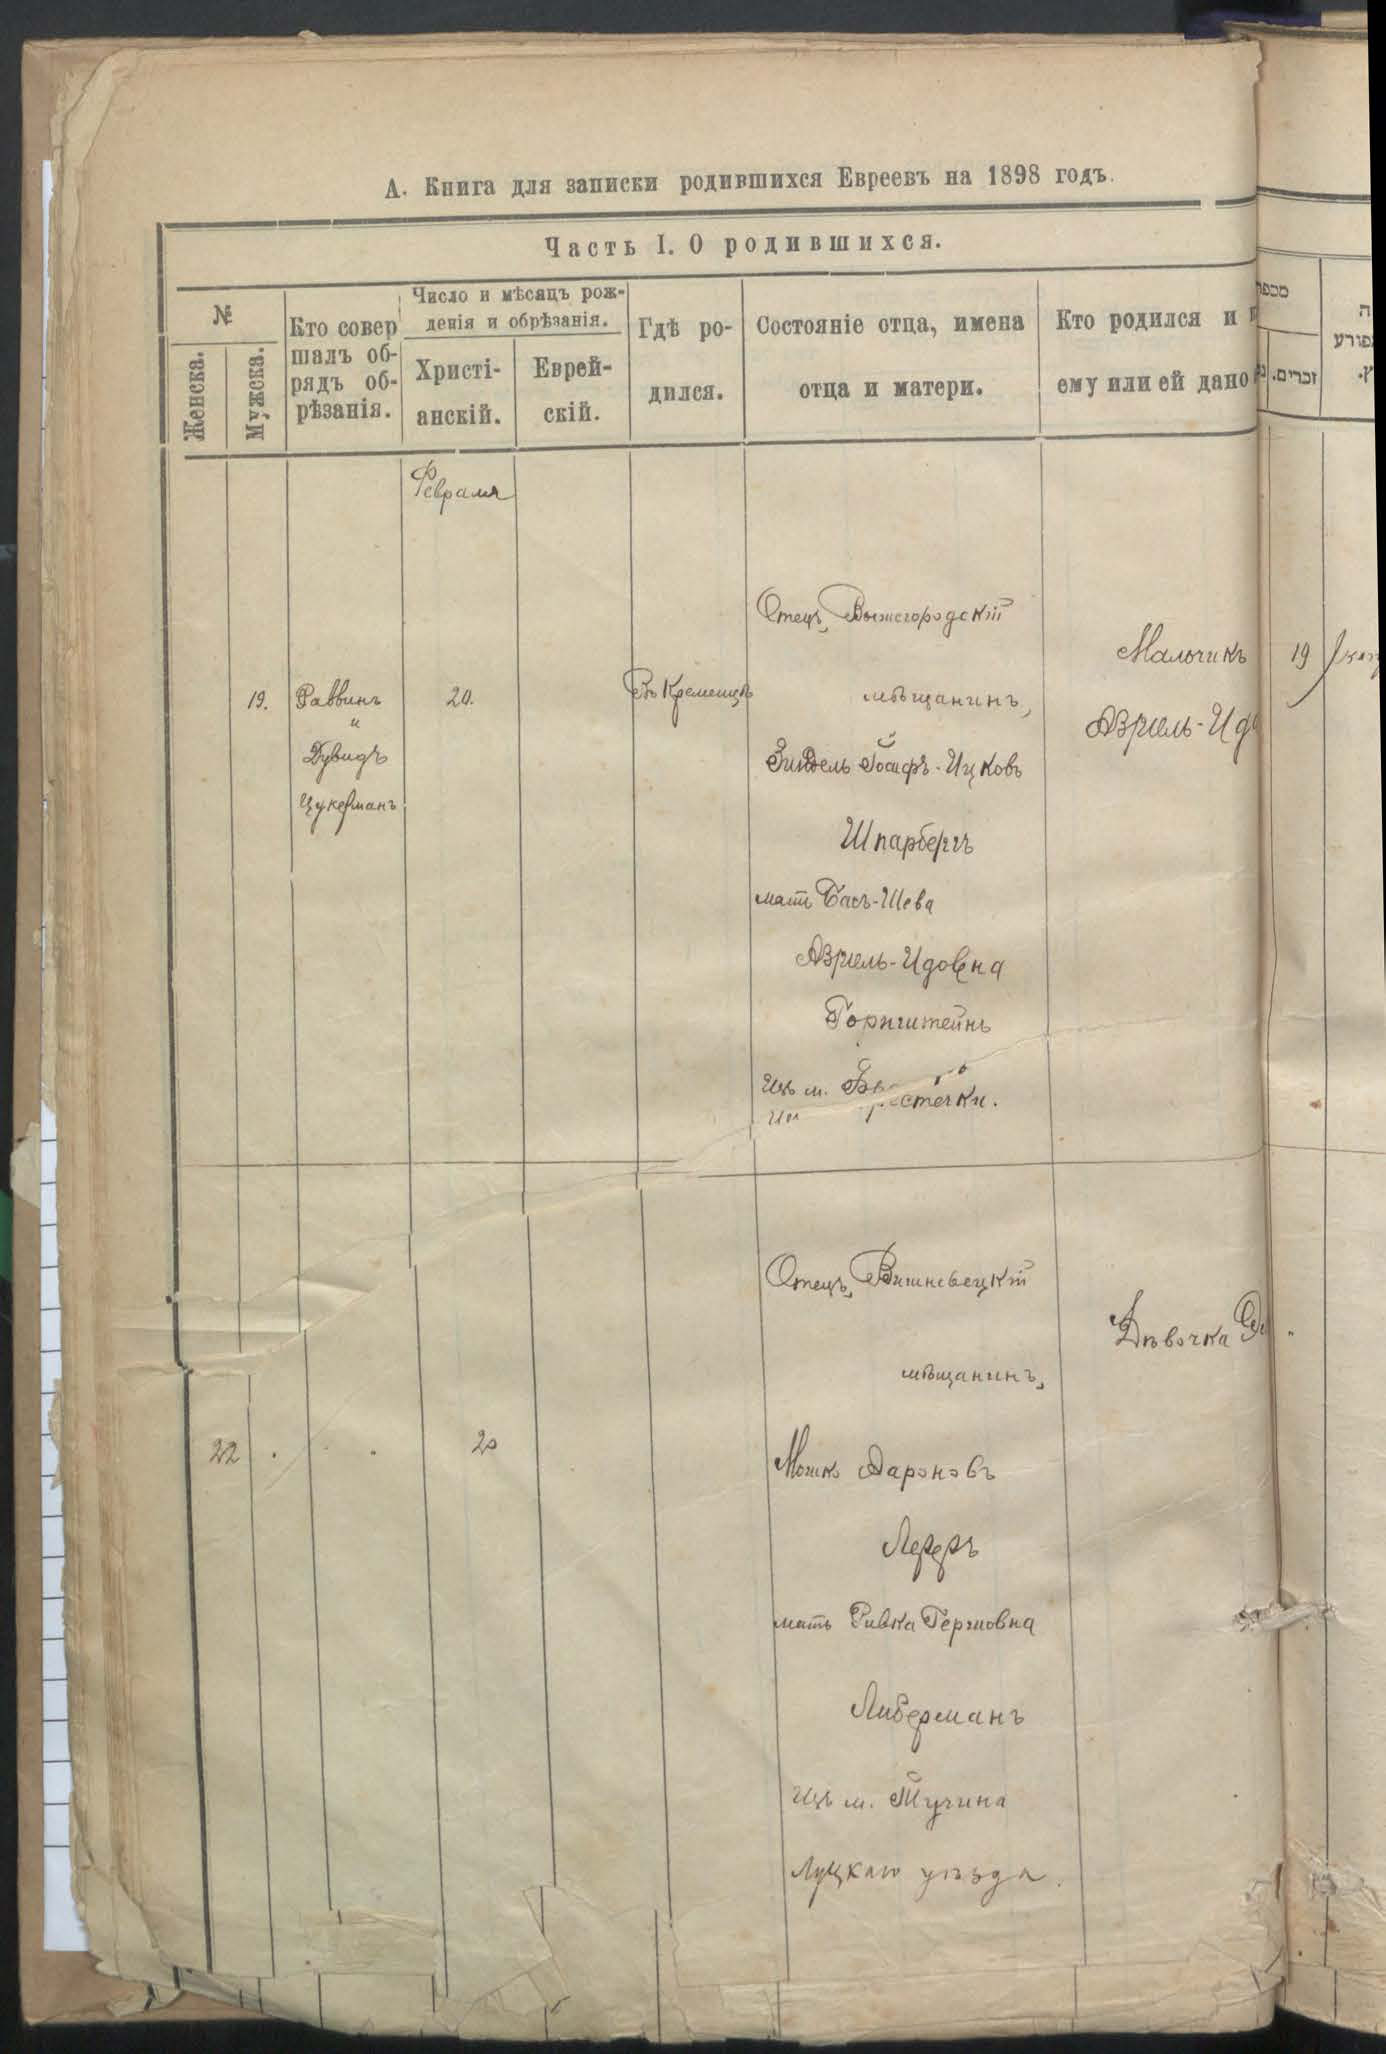 А. Книга для записки родившихся Евреевъ на 1898 годъ.
Часть I. О родившихся.
№
Женска.
Мужска.
Кто совер
шалъ об-
рядъ об-
рѣзанія.
Число и мѣсяцъ рож-
денія и обрѣзанія.
Христі-
анскій.
Еврей-
скій.
Гдѣ ро-
дился.
Состояніе отца, имена
отца и матери.
Кто родился и
ему или ей дано
זכרים.
Февраля
19.
Раввинъ
и
Дувидъ
Цукерманъ
20.
Въ Кременцѣ
Отецъ, Вышгородскій
мѣщанинъ,
Зиндель Іосифъ-Ицковъ
Шпарбергъ
мать Бась-Шева
Азріель-Идовна
Горнштейнъ
Изъ м.
Мальчикъ
Азріель-Ид
19
22
20
Отецъ, Вишневецкій
мѣщанинъ,
Мошко Аароновъ
Лереръ
мать Ривка Гершовна
Либерманъ
Изъ м. Тучина
Луцкаго уѣзда.
Дѣвочка